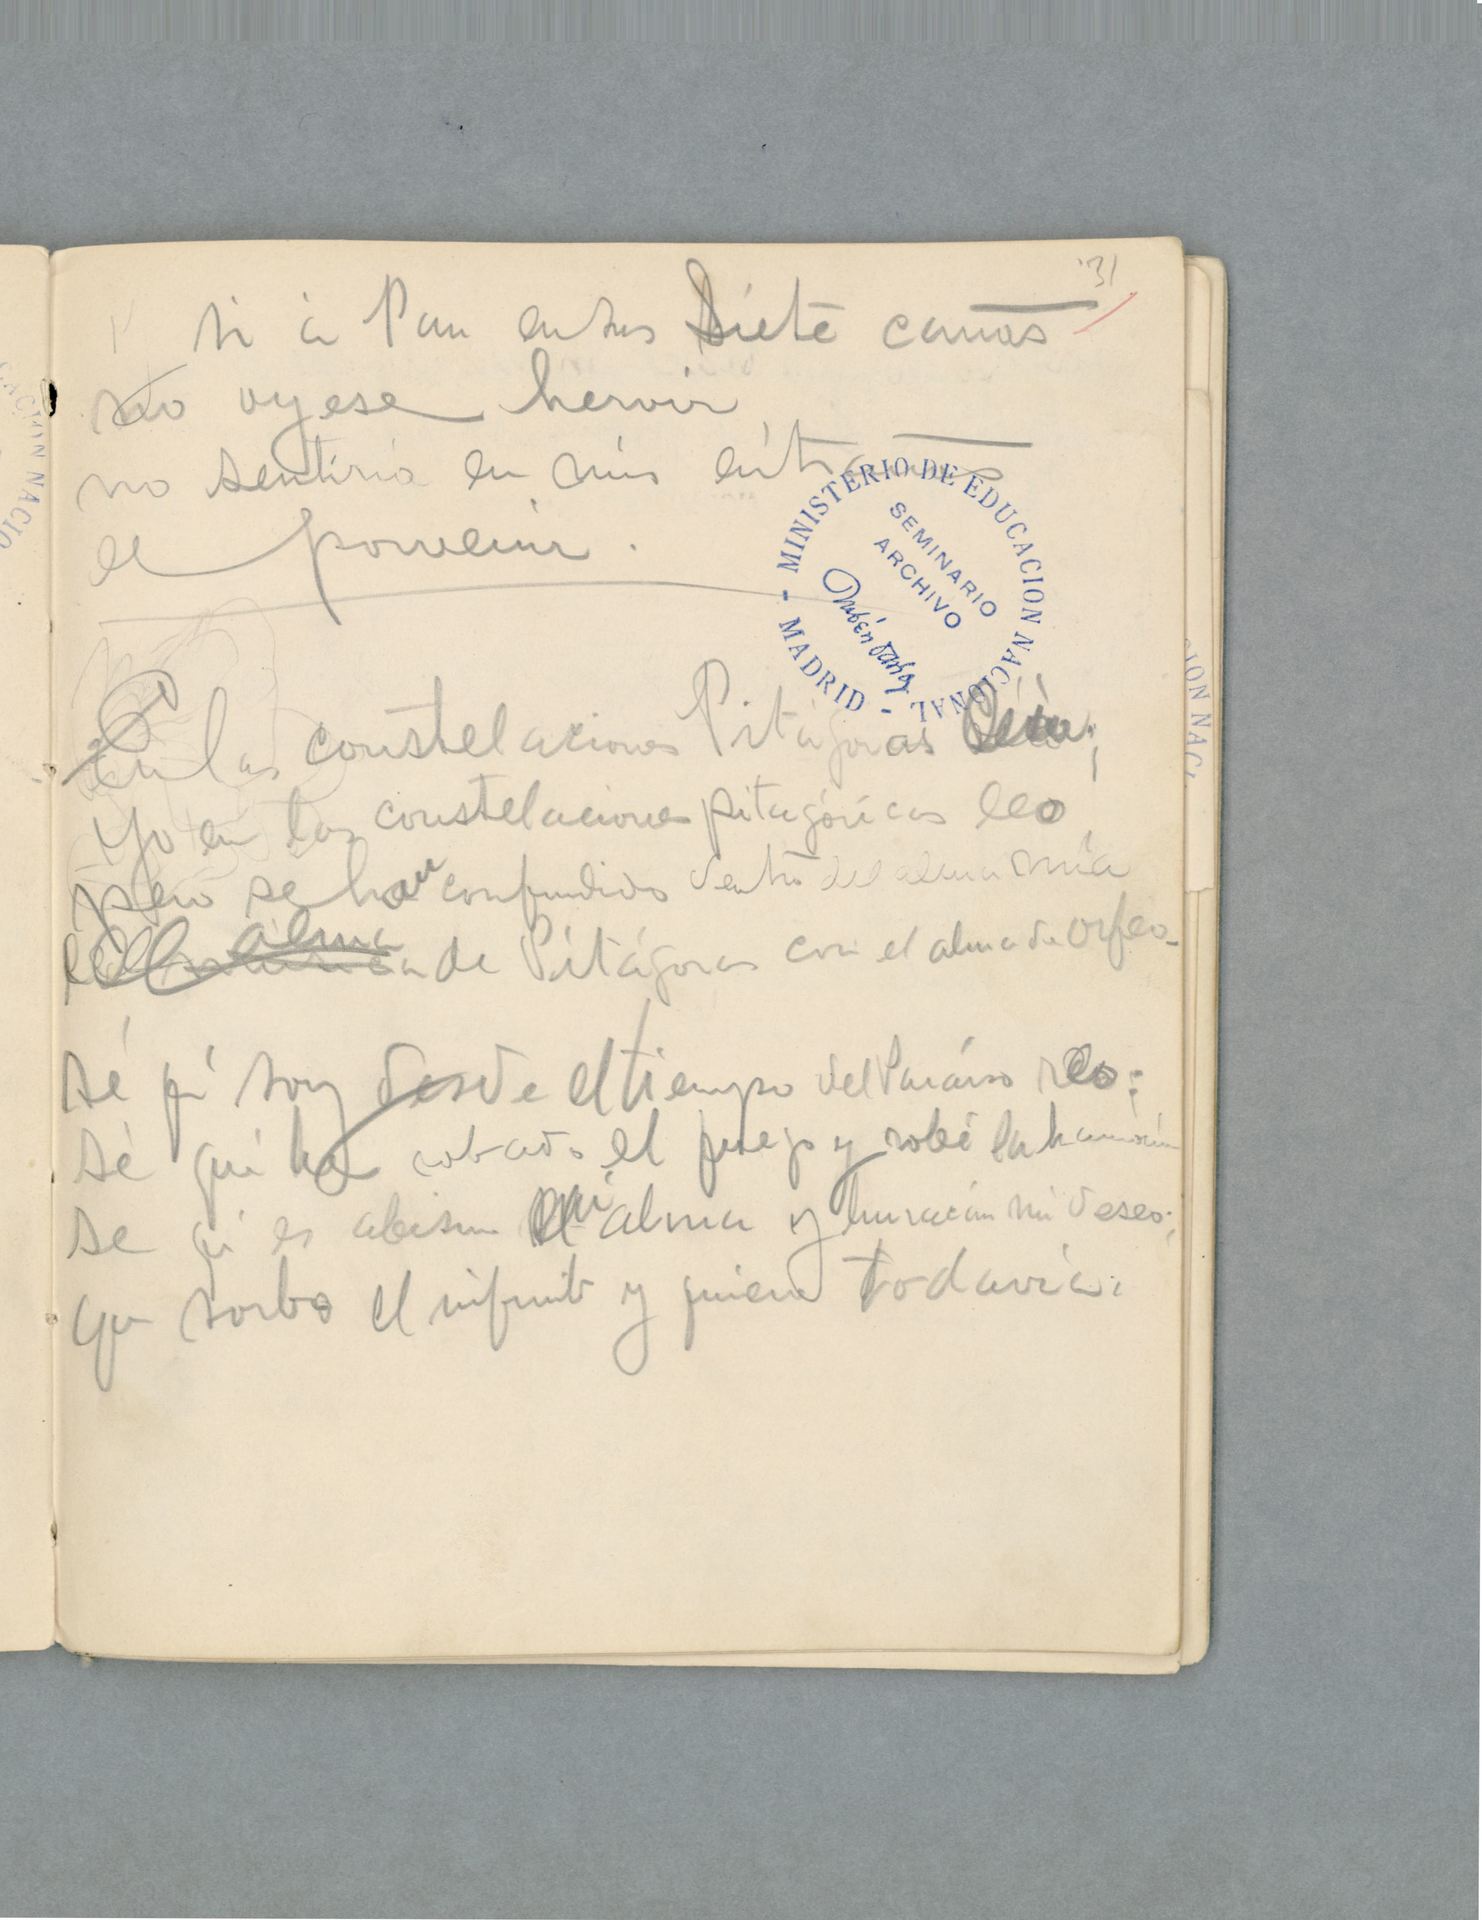 31
si á Pan en sus siete cañas
no oyese hervir
no sentiría en mis entrañas
el porvenir.
MINISTERIO DE EDUCACION NACIONAL - MADRID -
SEMINARIO
ARCHIVO
Rubén Darío
En las constelaciones Pitágoras leía;
Yo en las constelaciones pitagóricas leo
pero se han confundido dentro del alma mía
el alma de Pitágoras con el alma de Orfeo.
Sé qe soy desde el tiempo del Paraíso reo:
Sé que he robado el fuego y robé la harmonía
Se qe es abismo mi alma y huracán mi deseo;
qe sorbo el infinito y quiere todavía.
CACION NACIO
CION NAC